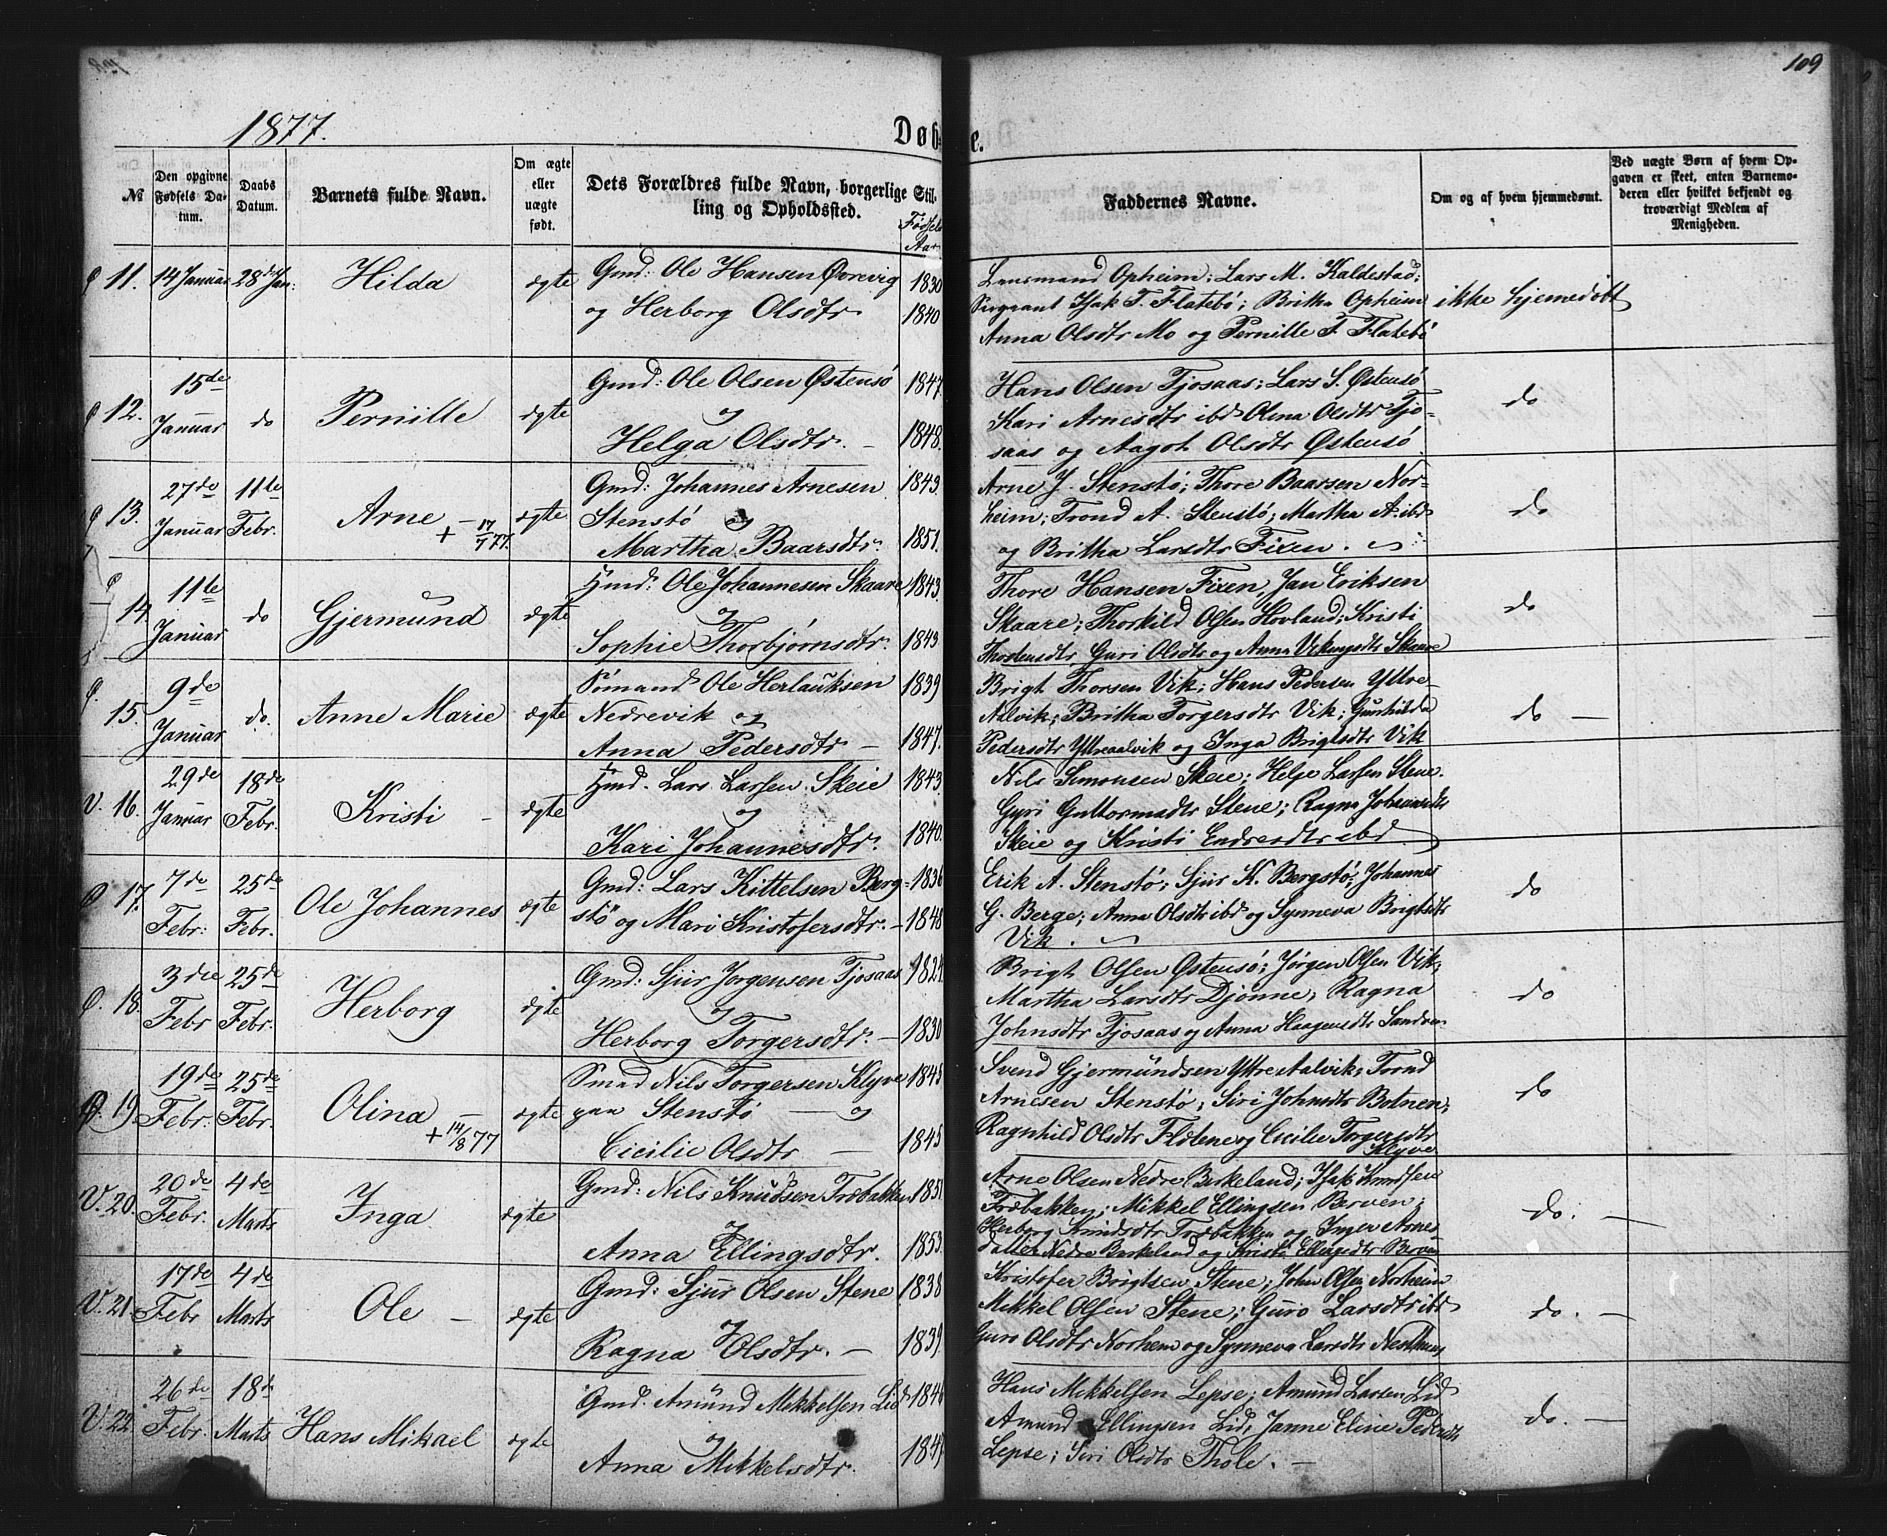 109
1877.
Døbte.
№
Den opgivne Fødsels Datum.
Daabs Datum.
Barnets fulde Navn.
Om ægte eller uægte født.
Dets Forældres fulde Navn, borgerlige Stilling og Opholdssted.
Fødsels Aar
Faddernes Navne.
Om og af hvem hjemmedøbt.
Ved uægte Børn af hvem Opgaven er skeet, enten Barnemoderen eller hvilket bekjendt og troværdigt Medlem af Menigheden.
11. 14 Januar 28de Jan: Hilda ægte
Gmd: Ole Hansen Øvrevig 1830
og Herborg Olsdtr 1840
Lensmand Opheim; Lars M. Kaldestad;
Sergeant Isak T. Flatebø; Britha Opheim
Anna Olsdtr Mo og Pernille T. Flatebø
ikke hjemedøbt
12. 15de Januar do Pernille ægte
Gmd: Ole Olsen Østensø 1847
og
Helga Olsdtr. 1848.
Hans Olsen Tjosaas; Lars S. Østensø
Kari Arnesdtr ibd Olina Olsdtr Tjo-
saas og Aagot Olsdtr Østensø
do
13. 27de Januar 11te Febr. Arne – + 17/7 77. ægte
Gmd: Johannes Arnesen 1843.
Stenstø og
Martha Baarsdtr. 1851.
Arne J. Stenstø; Thore Baarsen Nor-
heim; Trond A. Stenstø; Martha A. ibd
og Britha Larsdtr Fixen.
do
14. 11te Januar do Gjermund ægte
Hmd: Ole Johannesen Skaare 1843.
og
Sophie Thorbjørnsdtr. 1843
Thore Hansen Fixen, Jan Eriksen
Skaare; Thorkild Olsen Hovland; Kristi
Thostensdtr, Guri Olsdtr og Anna Vikingsdtr Skaare
do
15. 9de Januar do. Anne Marie ægte
Sømand Ole Herlauksen 1839
Nedrevik og
Anna Pedersdtr – 1847.
Brigt Thorsen Vik; Hans Pedersen Yttre-
Aalvik; Britha Torgersdtr Vik; Gunhilda
Pedersdtr Yttreaalvik og Inga Brigtsdtr Vik
do –
V. 16. 29de Januar 18de Febr. Kristi – ægte
Hmd. Lars Larsen Skeie 1843.
og
Kari Johannesdtr. 1840.
Nils Simonsen Skeie; Helje Larsen Stene.
Gyri Guttormsdtr Stene; Ragna Johannesdtr
Skeie og Kristi Endresdtr ibd
17. 7de Febr: 25de Febr. Ole Johannes ægte
Gmd: Lars Kittelsen Berg- 1836
stø og Mari Kristofersdtr. – 1848
Erik A. Stenstø; Sjur K. Bergstø; Johannes
G. Berge; Anna Olsdtr ibd og Synneva Brigtsdtr
Vik.
do
18. 3die Febr 25de Febr. Herborg ægte
Gmd: Sjur Jørgensen Tjosaas 1824
og
Herborg Torgersdtr. – 1830
Brigt Olsen Østensø; Jørgen Olsen Vik;
Martha Larsdtr Djønne; Ragna
Johnsdtr Tjosaas og Anna Haagensdtr Sandven
do
19. 19de Febr: 25de Febr. Olina – + 14/8 77 ægte
Smad Nils Torgersen Klyve 1845
paa Stenstø — og
Cicilie Olsdtr – 1845
Svend Gjermundsen Yttre Aalvik; Trond
Arnesen Stenstø; Siri Johnsdtr Botnen;
Ragnhild Olsdtr Flotene og Cicilie Torgersdtr
Klyve
do
V. 20. 20de Febr. 4de Marts Inga ægte
Gmd: Nils Knudsen Træbakken 1851
og
Anna Ellingsdtr. 1853.
Arne Olsen Nedre Birkeland; Isak Knudsen
Træbakken; Mikkel Ellingsen Berven;
Herborg Knudsdtr Træbakken og Inger Arnes-
datter Nedre Birkeland og Kristi Ellingsdtr Berven
do. –
V. 21. 17de Febr 4de Marts Ole – ægte
Gmd: Sjur Olsen Stene 1838
og
Ragna Olsdtr. – 1839.
Kristofer Brigtsen Stene; John Olsen Norheim
Mikkel Olsen Stene; Guro Larsdtr ibd
Guro Olsdtr Norhem og Synneva Larsdtr Nesthus
do. –
V. 22. 26de Febr. 18de Marts Hans Mikael ægte
Gmd: Amund Mikkelsen Lid 1846
og
Anna Mikkelsdtr. 1847
Hans Mikkelsen Lepse; Amund Larsen Lid
Amund Ellingsen Lid; Janne Eline Pedersdtr
Lepse; Siri Olsdtr Thole. –
do. –